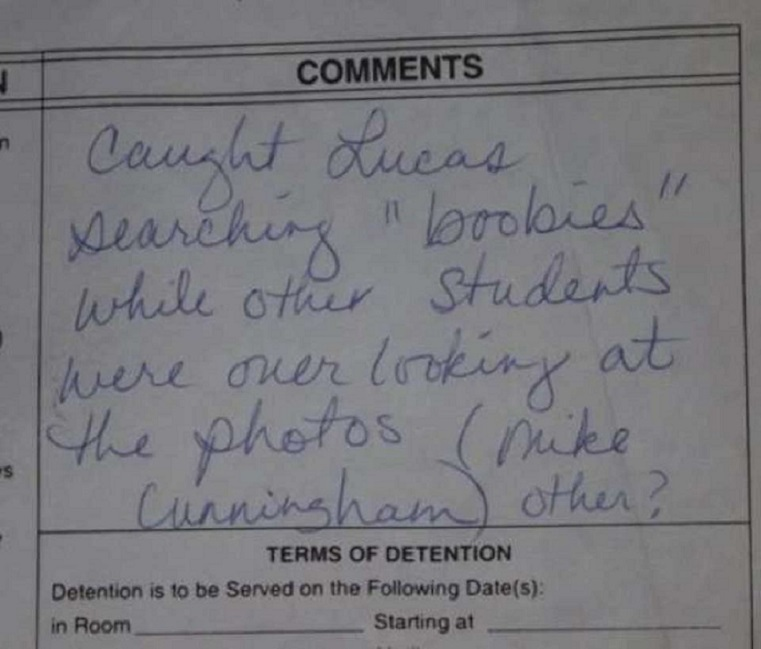 COMMENTS
Caught Lucas
searching "boobies"
while other students
were over looking at
the photos (Mike
Cunningham) other?
TERMS OF DETENTION
Detention is to be Served on the Following Date(s):
in Room Starting at